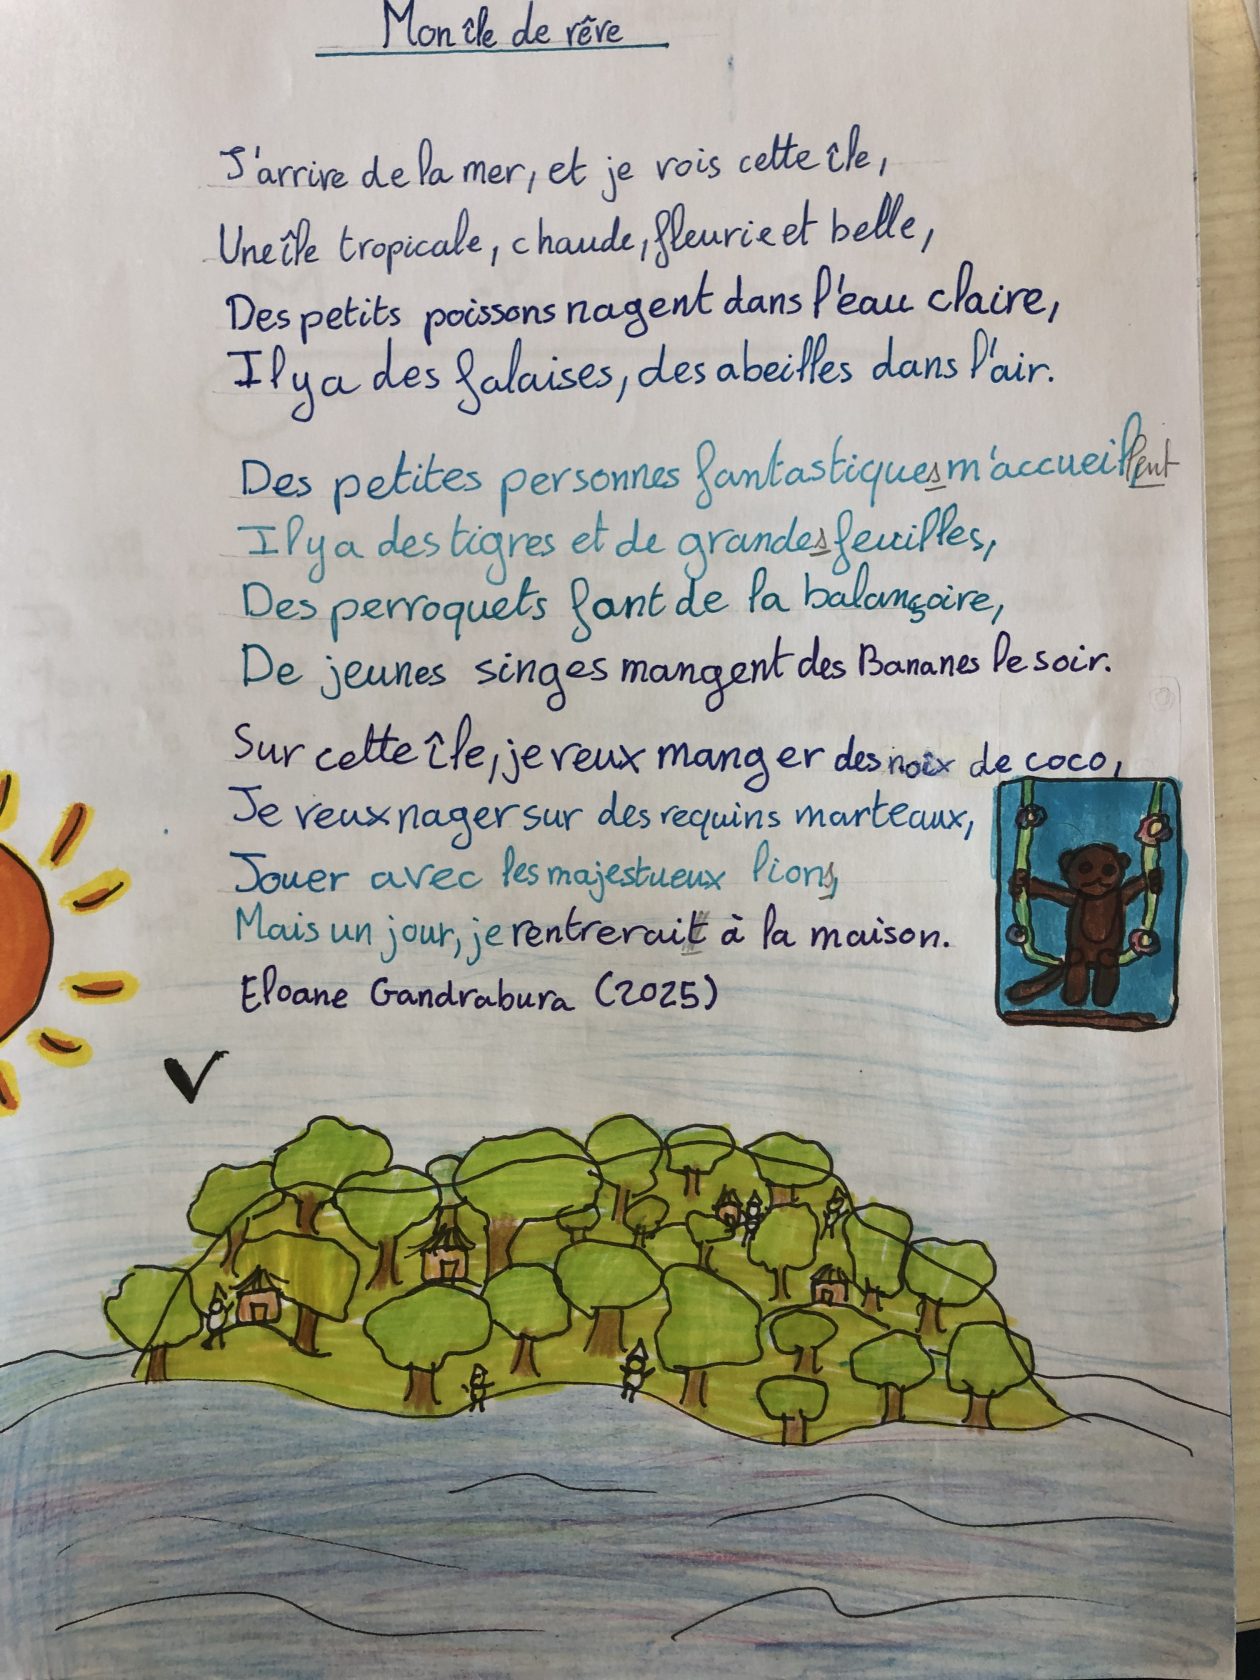 Mon île de rêve
J'arrive de la mer, et je vois cette île,
Une île tropicale, chaude, fleurie et belle,
Des petits poissons nagent dans l'eau claire,
Il y a des falaises, des abeilles dans l'air.
Des petites personnes fantastiques m'accueillent
Il y a des tigres et de grandes feuilles,
Des perroquets font de la balançoire,
De jeunes singes mangent des Bananes le soir.
Sur cette île, je veux manger des noix de coco,
Je veux nager sur des requins marteaux,
Jouer avec les majestueux lions,
Mais un jour, je rentrerait à la maison.
Eloane Gandrabura (2025)